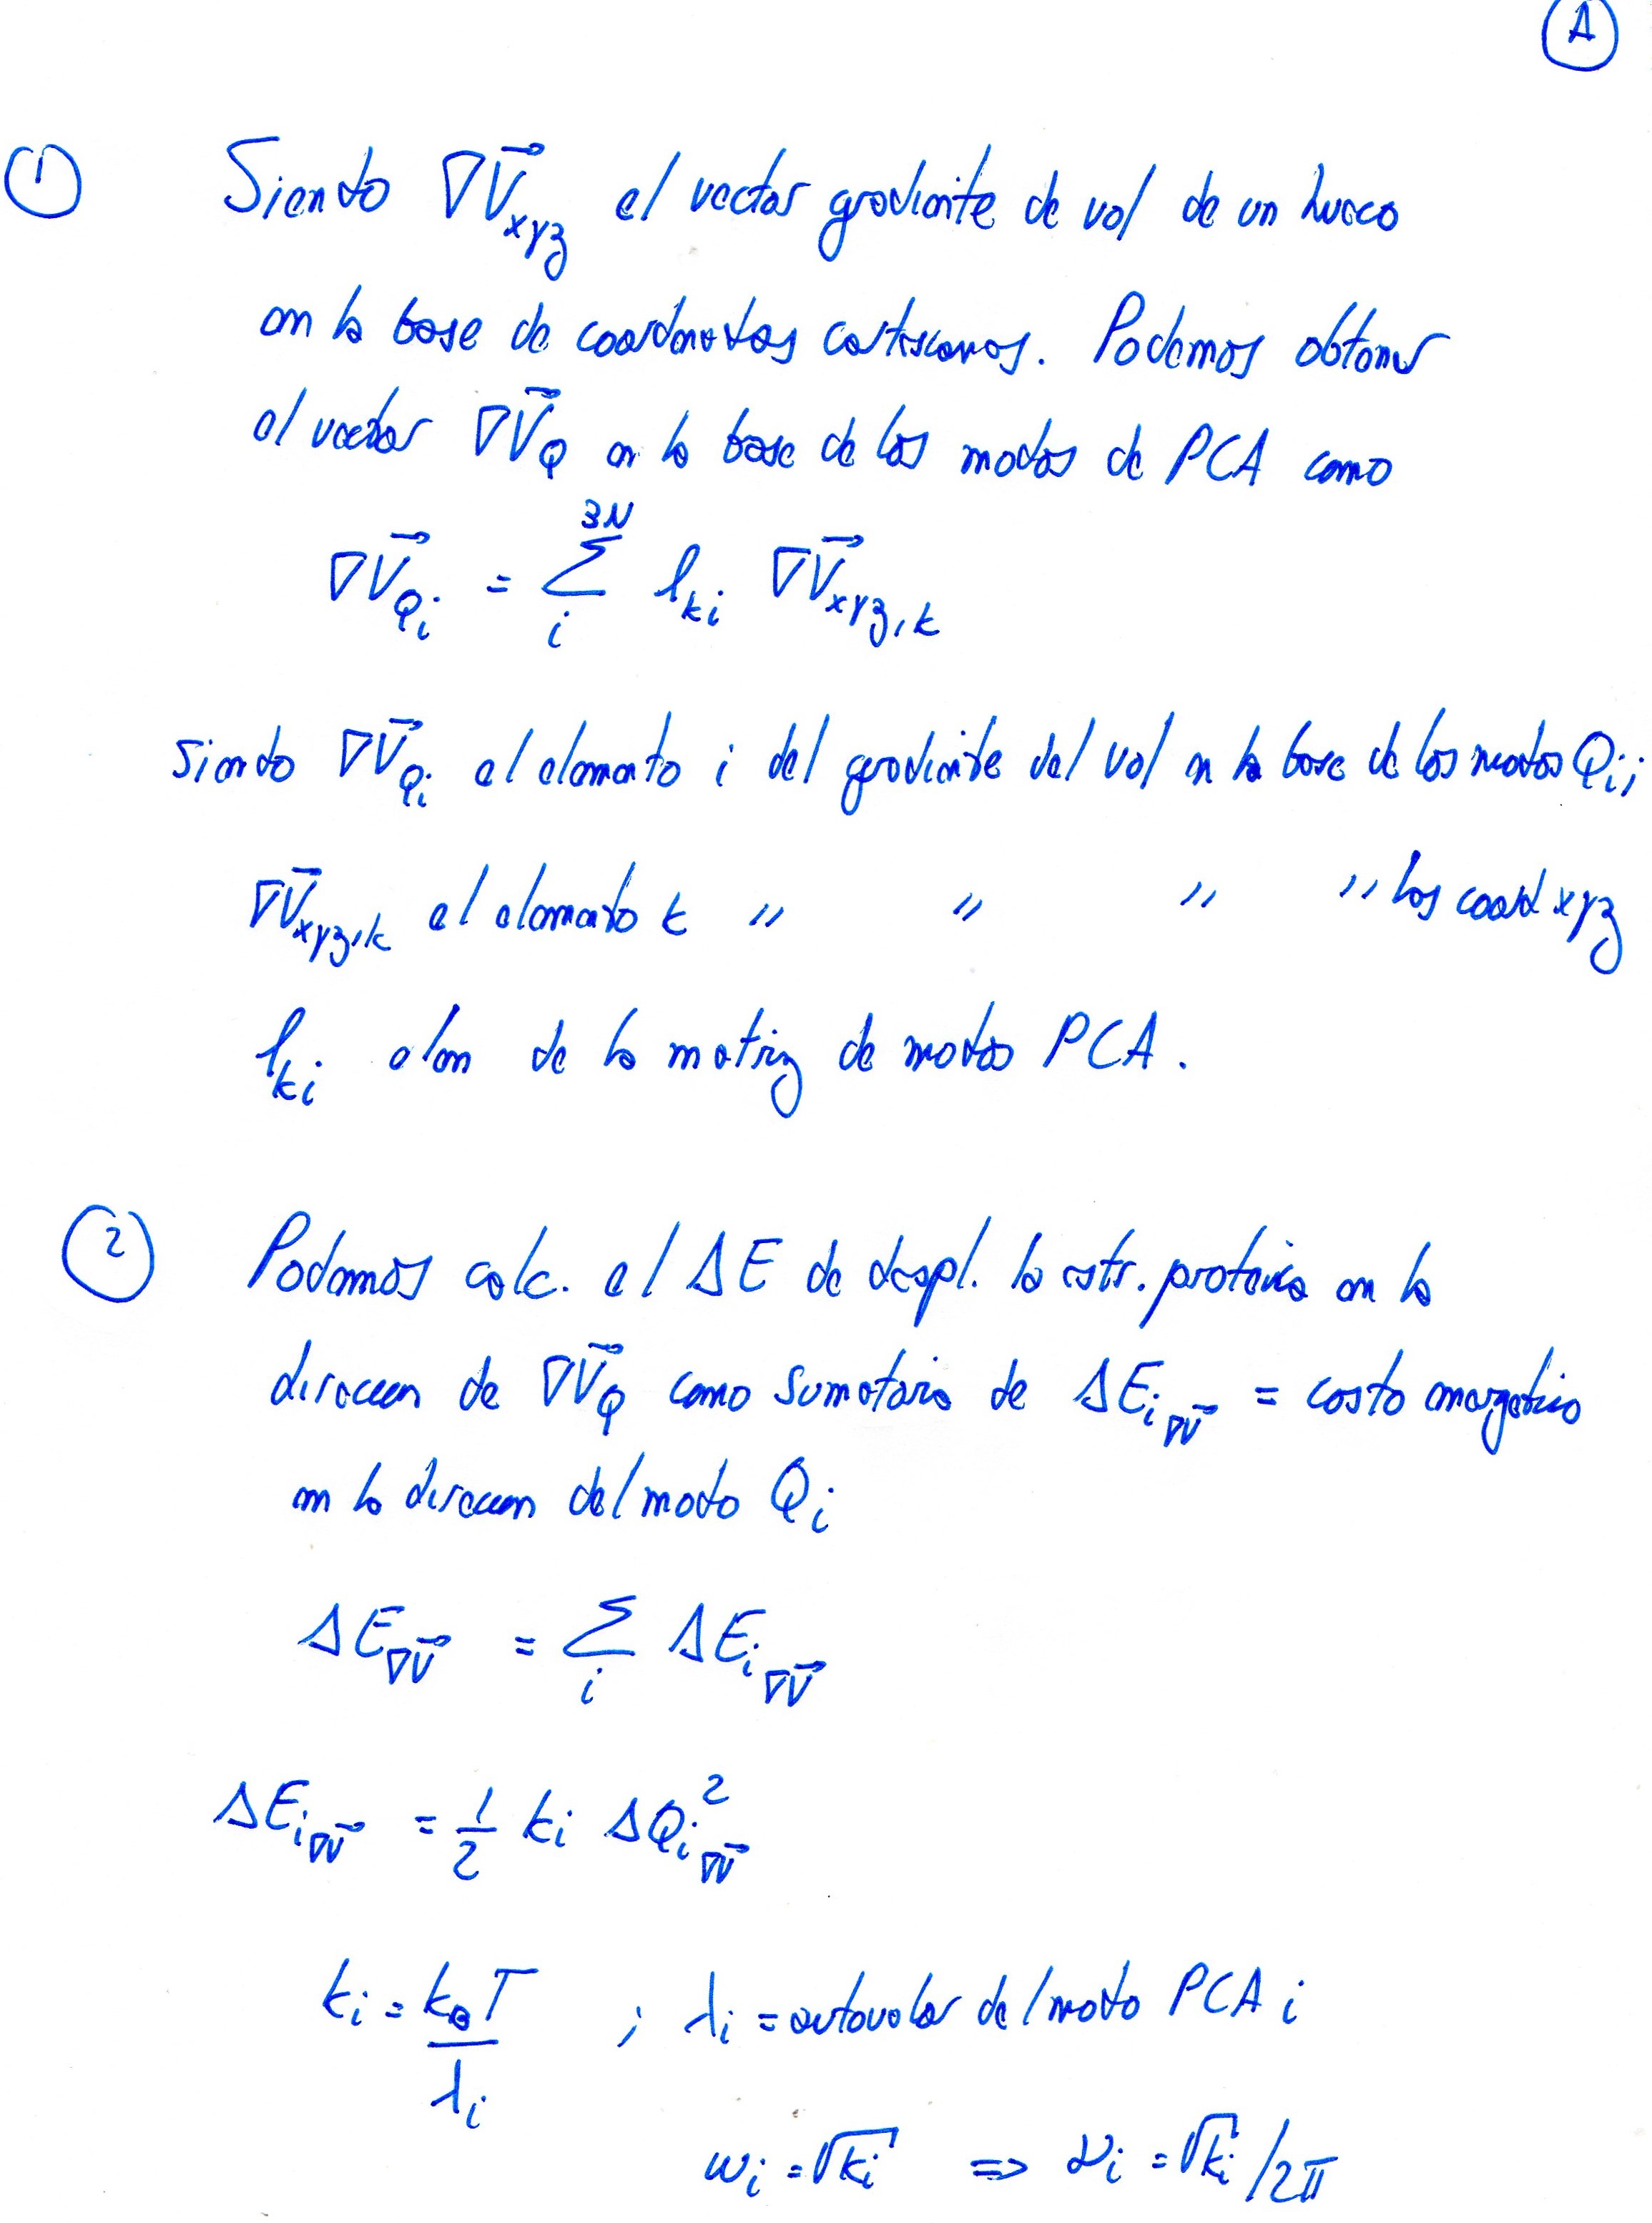 A
① Siendo ∇V⃗xyz el vector gradiente de vol de un hueco
en la base de coordenadas cartesianas. Podemos obtener
el vector ∇V⃗Q en la base de los modos de PCA como
∇V⃗Qi = Σ_i^{3N} lki ∇V⃗xyz,k
Siendo ∇V⃗Qi el elemento i del gradiente del vol en la base de los modos Qi;
∇V⃗xyz,k el elemento k " " " " las coord xyz
lki elem de la matriz de modos PCA.
② Podemos calc. el ΔE de despl. la estr. proteica en la
direccion de ∇V⃗Q como sumatoria de ΔEi∇V⃗ = costo energetico
en la direccion del modo Qi
ΔE∇V⃗ = Σ_i ΔEi∇V⃗
ΔEi∇V⃗ = 1/2 ki ΔQi∇V⃗²
ki = kBT/λi ; λi = autovalor del modo PCA i
ωi = √ki ⇒ νi = √ki /2π